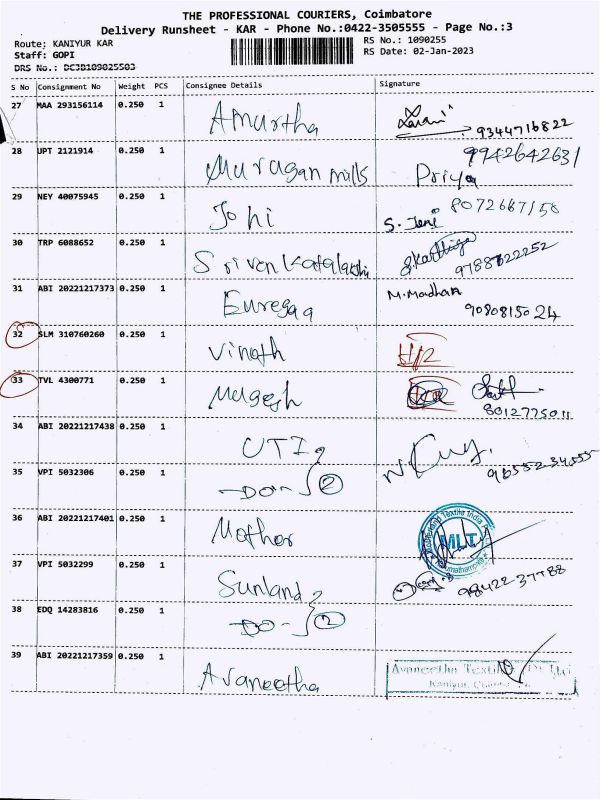 THE PROFESSIONAL COURIERS, Coimbatore
Delivery Runsheet - KAR - Phone No.:0422-3505555 - Page No.:3
Route: KANIYUR KAR
RS No.: 1090255
Staff: GOPI
RS Date: 02-Jan-2023
DRS No.: DC3B109025503
S No Consignment No Weight PCS Consignee Details Signature
27 MAA 293156114 0.250 1 Amurtha 9344716822
28 JPT 2121914 0.250 1 Murugan mills Priya 9942642631
29 NEY 40075945 0.250 1 Johi S. Jeni 8072667150
30 TRP 6088652 0.250 1 S.Karthiga 9788622252
31 ABI 20221217373 0.250 1 Euregaa M.Madhan 9080815024
32 SLM 310760260 0.250 1 Vinoth
33 TVL 4300771 0.250 1 Mugesh 8012775011
34 ABI 20221217438 0.250 1 UTI
35 VPI 5032306 0.250 1 -DO- 2 9655234555
36 ABI 20221217401 0.250 1 Mother MLT
37 VPI 5032299 0.250 1 Sunland
38 EDQ 14283816 0.250 1 -DO- 2
39 ABI 20221217359 0.250 1 Avaneetha